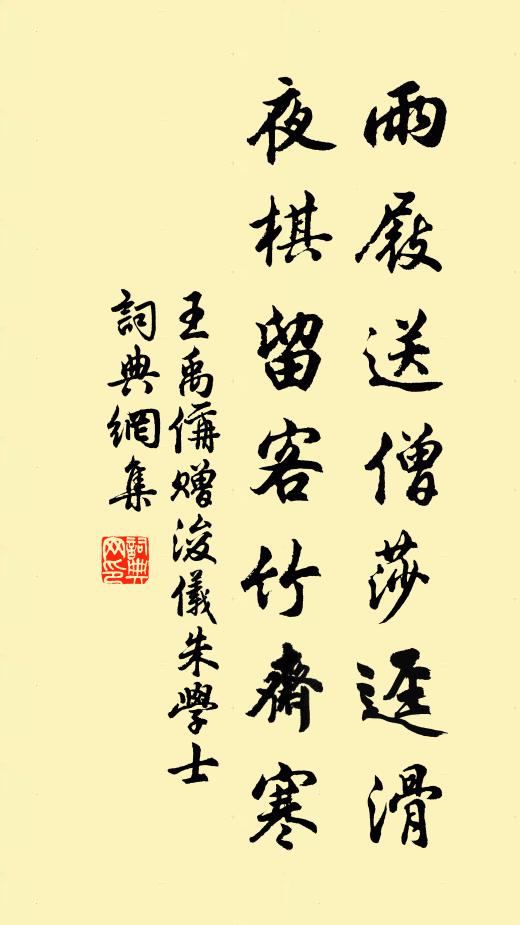 雨屐送僧莎迳滑
夜棋留客竹齋寒
王禹偁贈浚儀朱學士
詞典網集
詞典網印